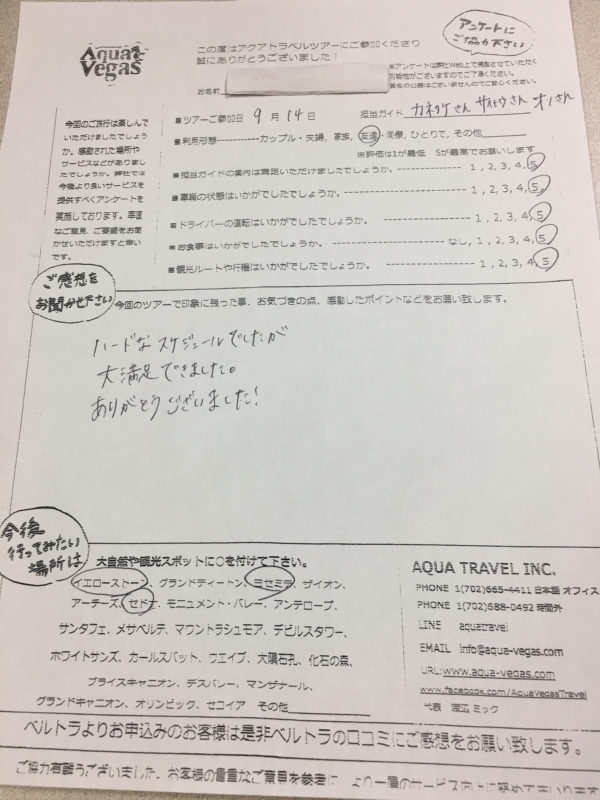 Aqua Vegas
この度はアクアトラベルツアーにご参加くださり
誠にありがとうございました！
アンケートに
ご協力下さい
本アンケートは弊社Web上で発表させていただく
可能性がございますのでご了承ください。
お名前
今回のご旅行は楽しんで
いただけましたでしょう
か。感動された場所や
サービスなどがありまし
たでしょうか。弊社では
今後より良いサービスを
提供すべくアンケートを
実施しております。率直
なご意見、ご要望をお聞
かせいただけますと幸い
です。
■ツアーご参加日 9月14日 担当ガイド カネタケさん サトウさん オノさん
■利用形態-----------カップル・夫婦, 家族, 友達・同僚, ひとりで, その他
※評価は1が最低 5が最高でお願いします
■担当ガイドの案内は満足いただけましたでしょうか。 1, 2, 3, 4, 5
■車輌の状態はいかがでしたでしょうか。 1, 2, 3, 4, 5
■ドライバーの運転はいかがでしたでしょうか。 1, 2, 3, 4, 5
■お食事はいかがでしたでしょうか。 なし, 1, 2, 3, 4, 5
■観光ルートや行程はいかがでしたでしょうか。 1, 2, 3, 4, 5
ご感想を
お聞かせ下さい
今回のツアーで印象に残った事、お気づきの点、感動したポイントなどをお願い致します。
ハードなスケジュールでしたが
大満足できました。
ありがとうございました！
今後
行ってみたい
場所は
大自然や観光スポットに○を付けて下さい。
イエローストーン、グランドティートン、ヨセミテ、ザイオン、
アーチーズ、セドナ、モニュメント・バレー、アンテロープ、
サンタフェ、メサベルデ、マウントラシュモア、デビルスタワー、
ホワイトサンズ、カールスバット、ウエイブ、大隕石孔、化石の森、
ブライスキャニオン、デスバレー、マンザナール、
グランドキャニオン、オリンピック、セコイア その他
AQUA TRAVEL INC.
PHONE 1(702)665-4411 日本語 オフィス
PHONE 1(702)688-0492 時間外
LINE aquatravel
EMAIL info@aqua-vegas.com
URL: www.aqua-vegas.com
www.facebook.com/AquaVegasTravel
代表 渡辺 ミック
ベルトラよりお申込みのお客様は是非ベルトラの口コミにご感想をお願い致します。
ご協力有難うございました。お客様の貴重なご意見を参考に、より一層のサービス向上に努めてまいります